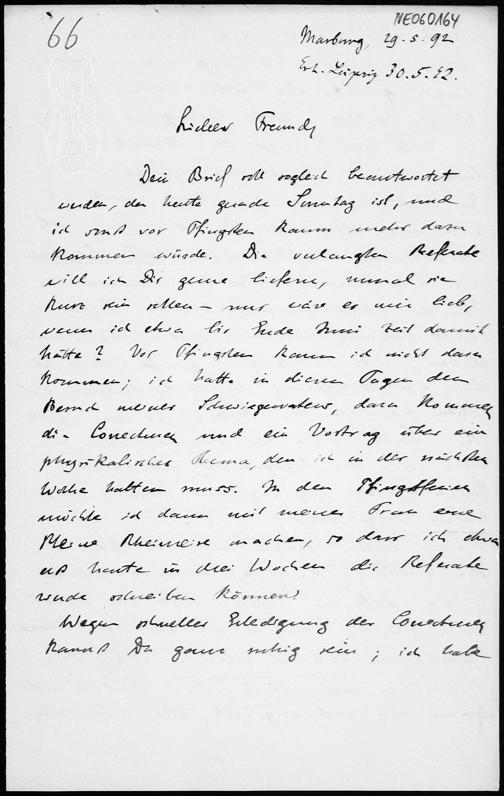 66
NE060164
Marburg, 29.5.92
Erh. Leipzig 30.5.92.
Lieber Freund,
Dein Brief soll sogleich beantwortet
werden, da heute gerade Sonntag ist, und
ich sonst vor Pfingsten kaum mehr dazu
kommen würde. Die verlangten Referate
will ich Dir gerne liefern, zumal sie
kurz sein sollen – nur wäre es mir lieb,
wenn ich etwa bis Ende Juni Zeit damit
hätte? Vor Pfingsten kann ich nicht dazu
kommen; ich hatte in diesen Tagen den
Besuch meines Schwiegervaters, dazu kommen
die Correcturen und ein Vortrag über ein
physikalisches Thema, den ich in der nächsten
Woche halten muss. In den Pfingstferien
möchte ich dann mit meiner Frau eine
kleine Rheinreise machen, so dass ich etwa
erst heute in drei Wochen die Referate
würde schreiben können?
Wegen schneller Erledigung der Correcturen
kannst Du ganz ruhig sein; ich habe